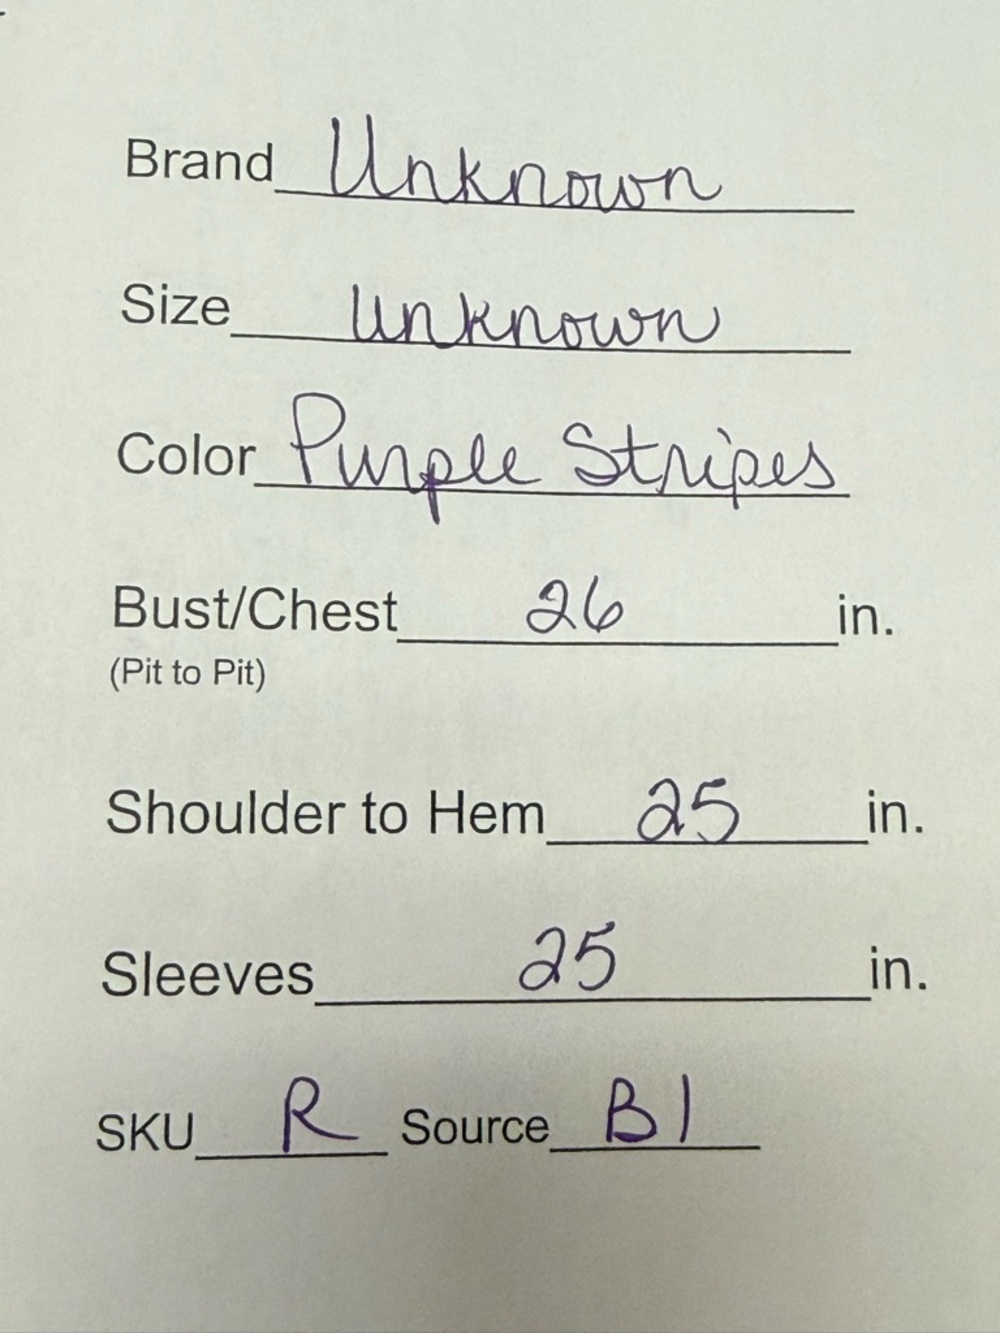 Brand Unknown
Size unknown
Color Purple Stripes
Bust/Chest 26 in.
(Pit to Pit)
Shoulder to Hem 25 in.
Sleeves 25 in.
SKU R Source B1